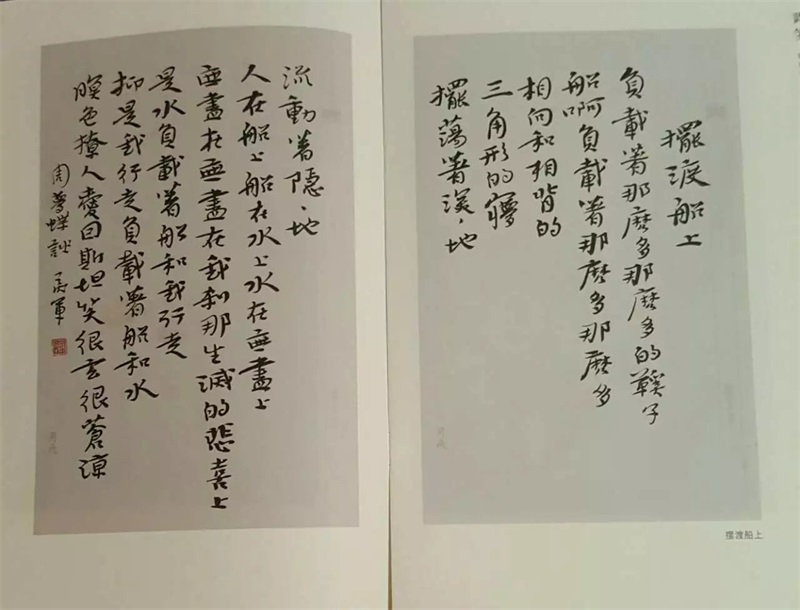 擺渡船上
負載著那麼多那麼多的鞋子
船啊負載著那麼多那麼多
相向和相背的
三角形的夢
擺蕩著深、地
流動著隱、地
人在船上船在水上水在無盡上
無盡在無盡在我剎那生滅的悲喜上
是水負載著船和我行走
抑是我行走負載著船和水
暝色撩人愛因斯坦笑很玄很蒼涼
周夢蝶詩
摆渡船上